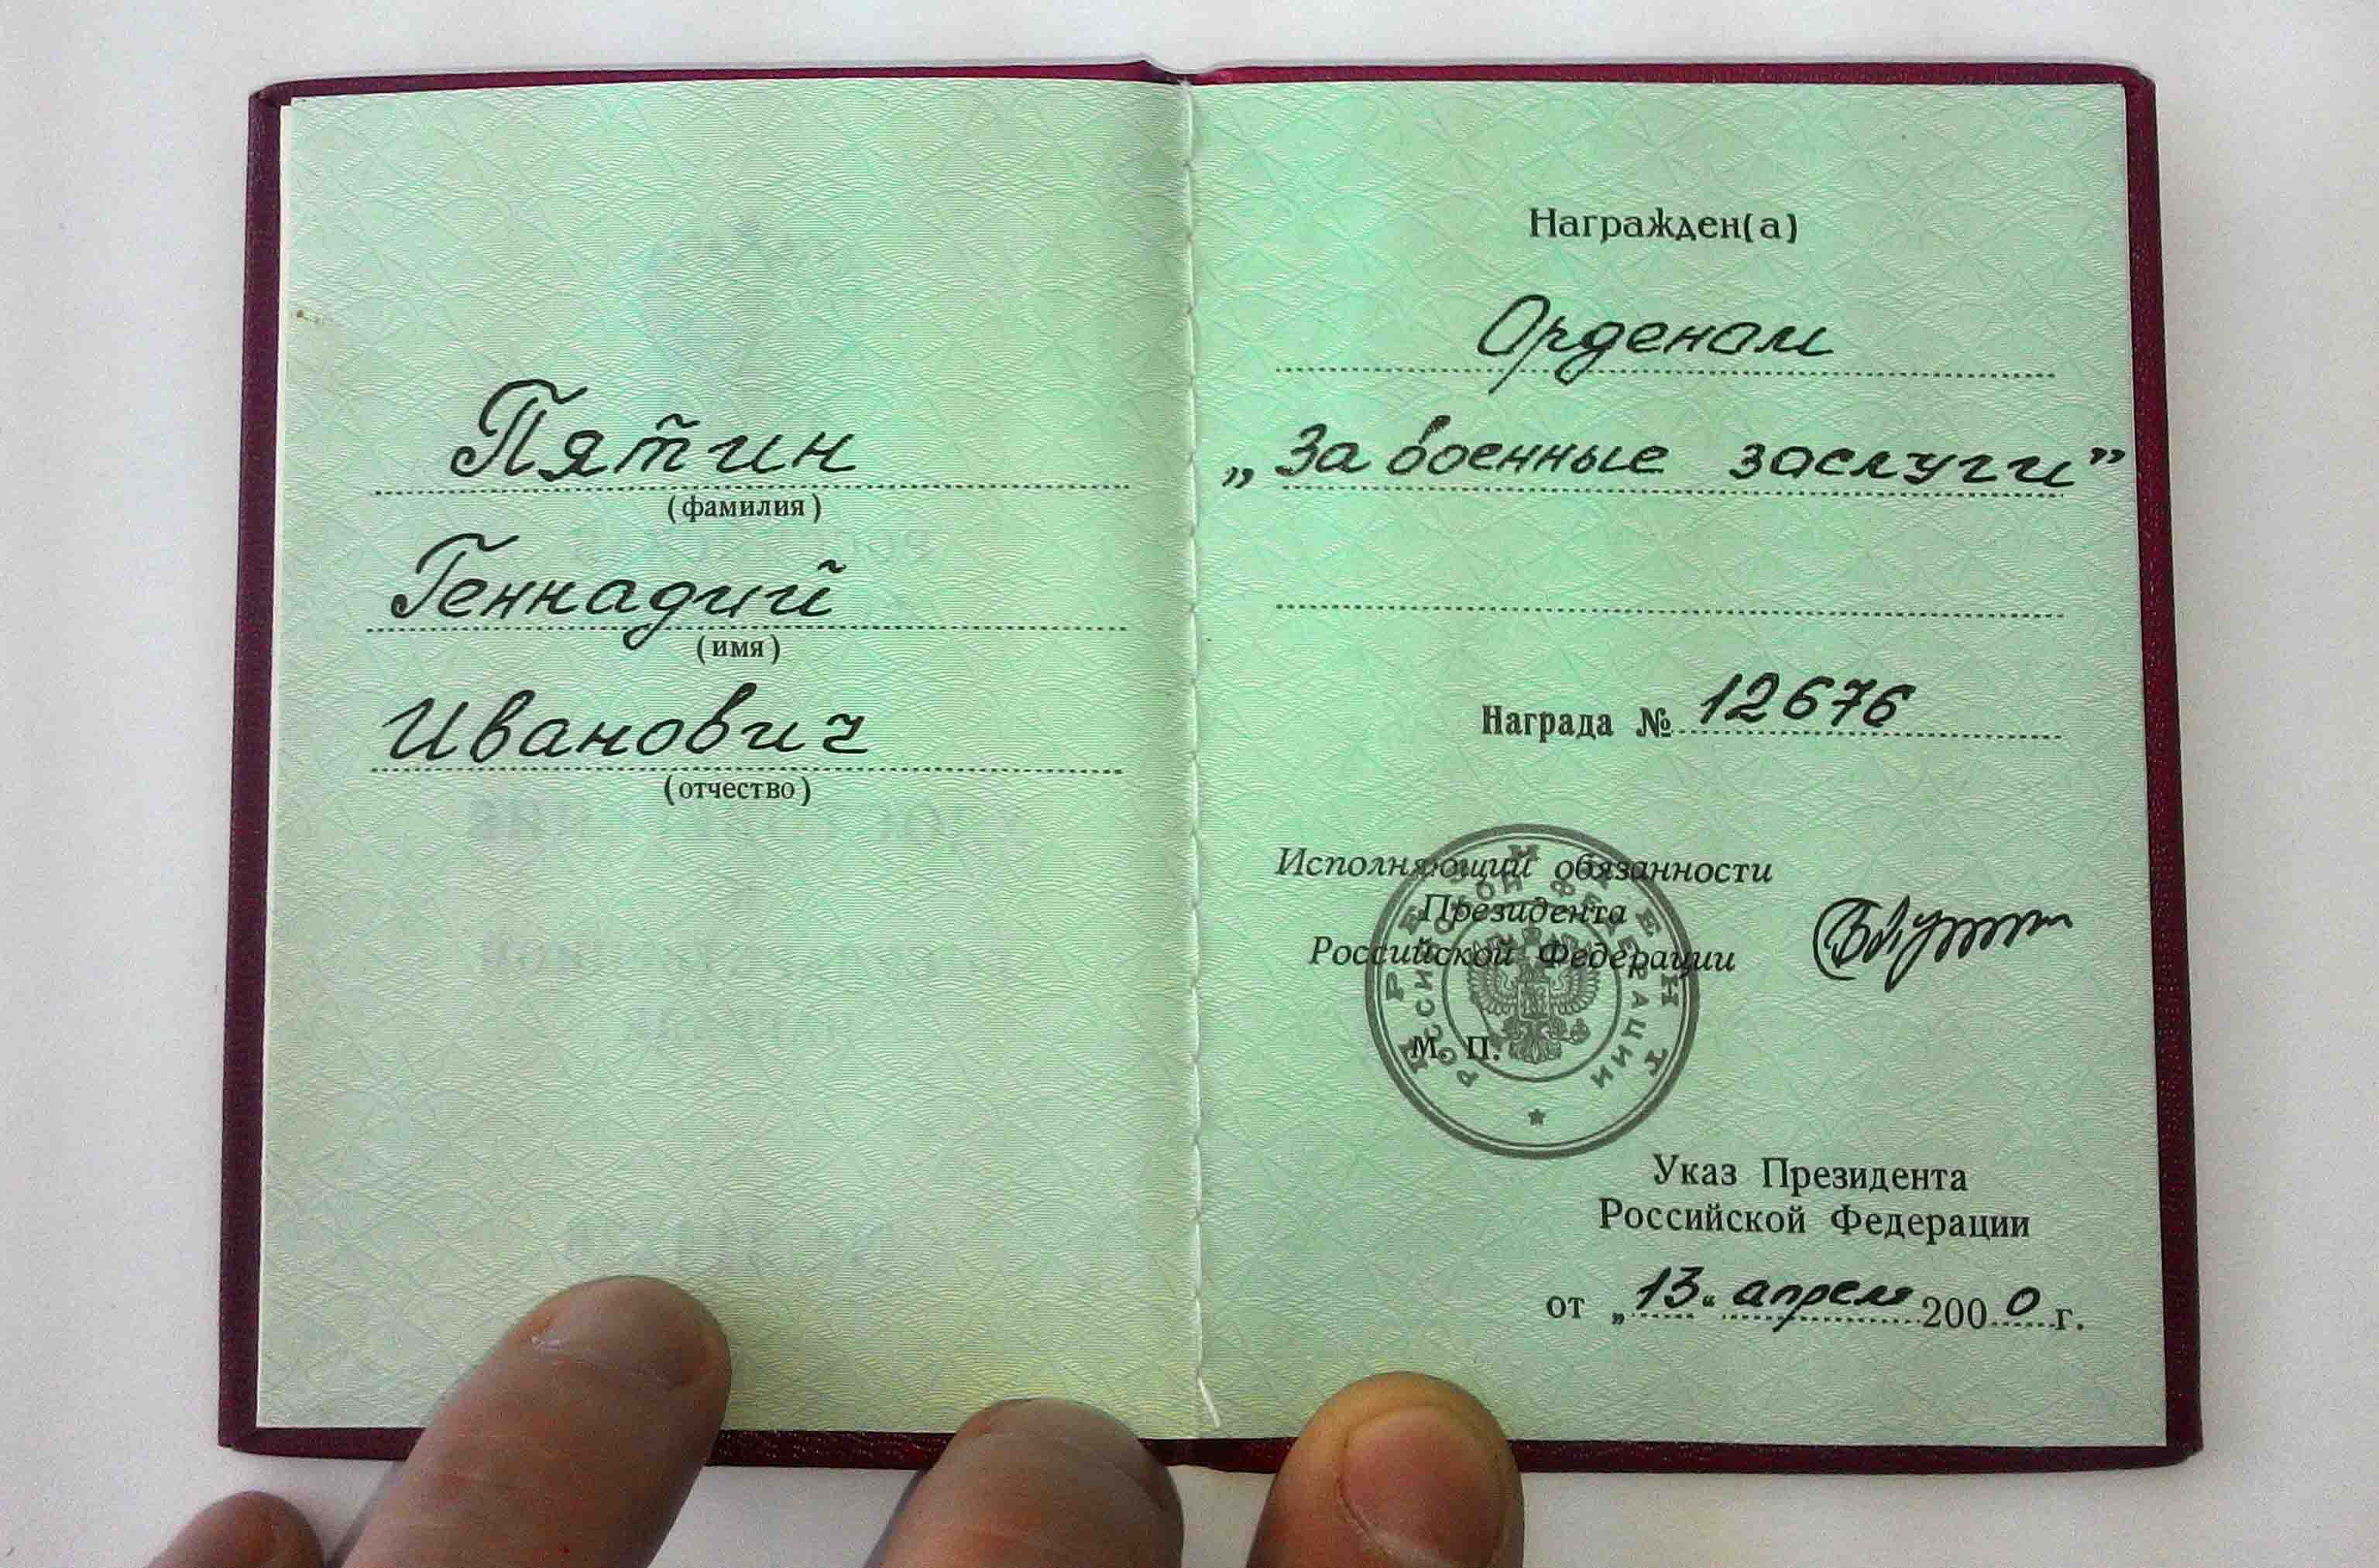 Пятин
(фамилия)
Геннадий
(имя)
Иванович
(отчество)
Награжден(а)
Орденом
„За военные заслуги”
Награда № 12676
Исполняющий обязанности
Президента
Российской Федерации
М. П.
ПРЕЗИДЕНТ
РОССИЙСКОЙ ФЕДЕРАЦИИ
Указ Президента
Российской Федерации
от „13“ апреля 2000 г.